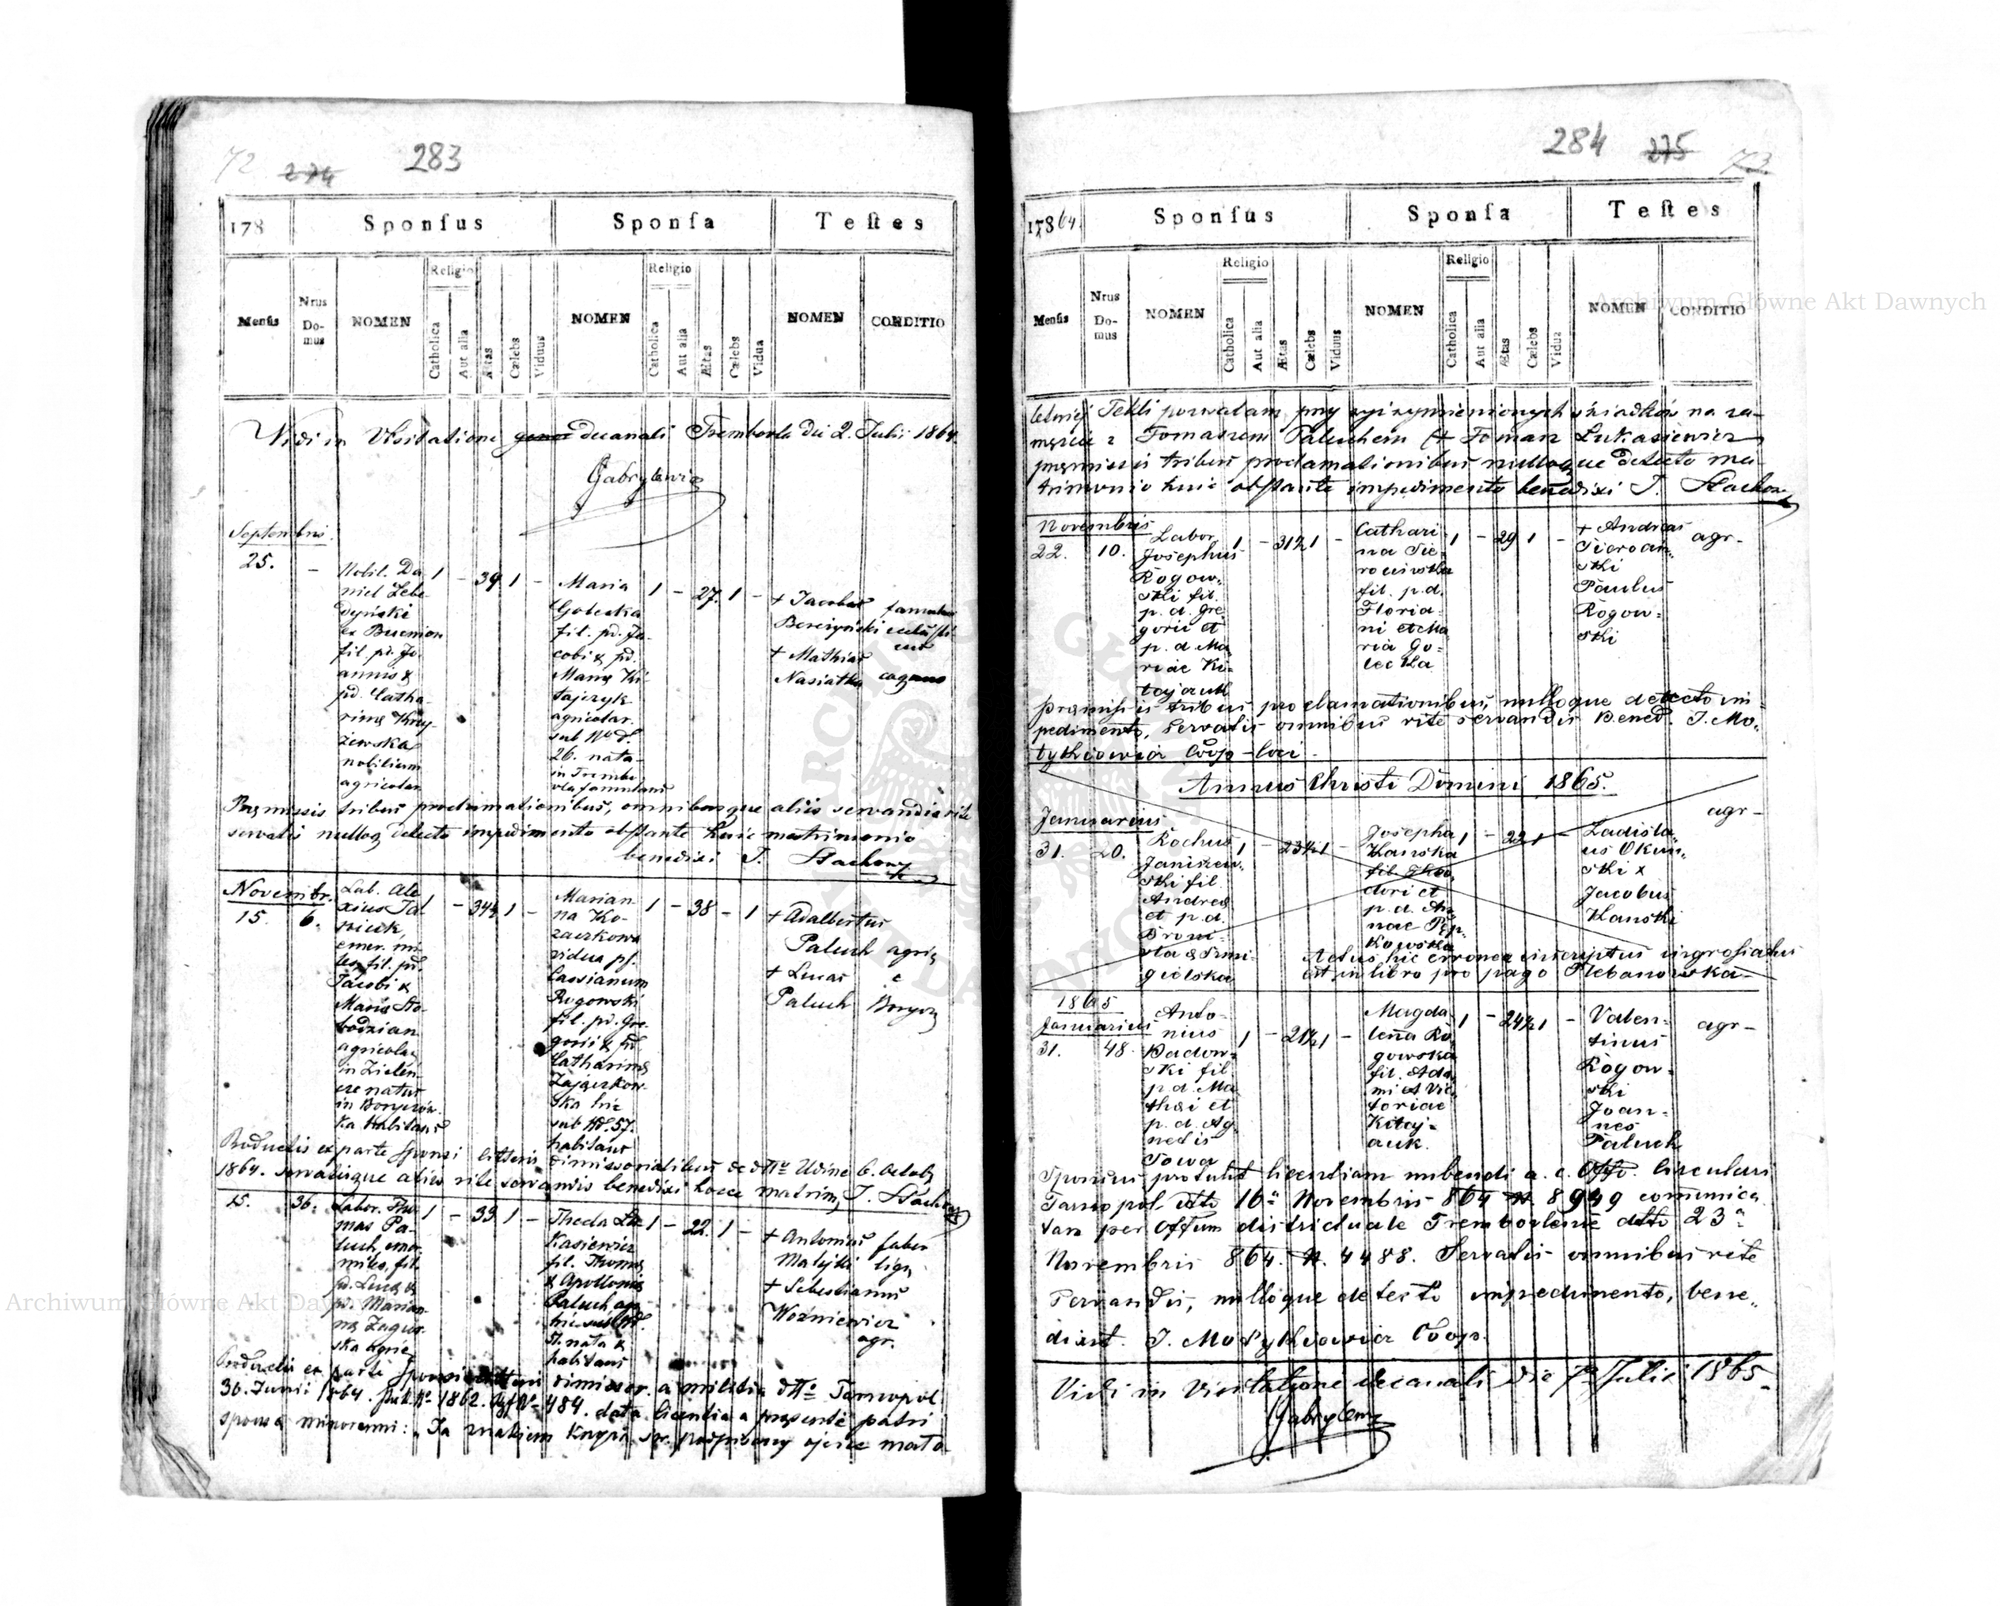 72 274 283
178 Sponſus Sponſa Teſtes
Menſis Nrus Domus NOMEN Religio Catholica Aut alia Ætas Cælebs Viduus NOMEN Religio Catholica Aut alia Ætas Cælebs Vidua NOMEN CONDITIO
Vidi in Visitatione decanali Trembovla die 2. Julii 1864
Gabrylewicz
Septembris
25. –
Nobil. Da
niel Lebe
dyński
ex Bucniow
fil. pd. Jo
annis &
pd. Catha
rinæ Krzy
żewska
nobilium
agricolar
1 – 39 1 –
Maria
Golecka
fil. pd. Ja
cobi & pd.
Mariæ Ki
tajczyk
agricolar.
sub Nd.
26. nata
in Trembo
vla famulans
1 – 27. 1 –
+ Jacobus
+ Mathias
Nasiatka
Præmissis tribus proclamationibus, omnibusque aliis servandis rite
servatis nulloq detecto impedimento obstante huic matrimonio
benedixi J. Stachow
Novembr.
15. 6.
Lab. Ale
xius Ja
emer. mi
les, fil. pd.
Jacobi &
Mariæ
agricolar
in
natus
in
ka habitans
1 – 34½ 1 –
Marian
na Ko
zaczkowa
vidua p.
Cassianum
Rogowski
fil. pd. Gre
gorii & pd.
Catharinæ
Zajączkow
ska hic
sub Nd. 57.
habitans
1 – 38 – 1
+ Adalbertus
Paluch agri
+ Lucas e
Paluch
Productis ex parte Sponsi litteris dimissorialibus de dtto 6. Octob
1864. servatisque aliis rite servandis benedixi hocce matrim. J. Stachow
15. 36.
Labor. Tho
mas Pa
luch, eme
miles, fil.
pd. Lucæ &
pd. Marian
næ Zagór
ska agric
1 – 33 1 –
Thecla Łu
kasiewicz
fil. Thomæ
& Apolloniæ
Paluch agr
hic sub Nd.
nata &
habitans
1 – 22. 1 –
+ Antonius faber
Matejki lign
+ Sebestianus
Woźniewicz
agr.
Productis ex parte Sponsi dimissor. a militia dtto Tarnopol
30. Junii 1864. 1862. 484. data licentia a præsente patri
sponsæ minorenni: „Ja znakiem Krzyża Sw. podpisany ojciec mało
284 275 73.
17864. Sponſus Sponſa Teſtes
Menſis Nrus Domus NOMEN Religio Catholica Aut alia Ætas Cælebs Viduus NOMEN Religio Catholica Aut alia Ætas Cælebs Vidua NOMEN CONDITIO
letniej Tekli pozwalam przy wyżwymienionych świadków na za-
męście z Tomaszem Paluchem + Tomasz Łukasiewicz
præmissis tribus proclamationibus nulloque detecto ma-
trimonio huic obstante impedimento benedixi J. Stachow
Novembris
22. 10.
Labor.
Josephus
Rogow-
ski fil.
p. d. Gre
gorii et
p. d. Ma
riae Ki-
tajczuk
1 – 31½ 1 –
Cathari
na Sie-
rocińska
fil. p. d.
Floria-
ni et Ma
ria Go-
lecka
1 – 29 1 –
+ Andreas
ski
Paulus
Rogow-
ski
agr-
præmissis tribus proclamationibus, nulloque detecto im
pedimento, servatis omnibus rite servandis Bened. J. Mo-
tykiewicz Coop-loci.
Annus Christi Domini 1865.
Januarius
31. 20.
Rochus
Janiszew-
ski fil.
Andreæ
et p. d.
Broni-
sla
1 – 23½ 1 –
Josepha
Kanska
fil. Theo-
dori et
p. d. An
nae Pep-
kowska
1 – 22 1 –
Ladisla-
us Okuń-
ski &
Jacobus
Kanski
agr-
Actus hic erronea inscriptus ingrossatus
est in libro pro pago Plebanowka
1865
Januarius
31. 48.
Anto-
nius
Badow-
ski fil
p. d. Ma
thæi et
p. d. Ag
netis
Sowa
1 – 21½ 1 –
Magda
lena Ro
gowska
fil. Ada-
mi et Vic-
toriae
Kitaj-
czuk.
1 – 24½ 1 –
Valen-
tinus
Rogow-
ski
Joan-
nes
Paluch
agr-
Sponsus protulit licentiam nubendi a. c. Offo. Circulari
Tarnopol. dtto 16ª Novembris 864 N. 8949 comunica
tam per Offum districtuale Trembovlense dtto 23ª
Novembris 864. N. 4488. Servatis omnibus rite
servandis, nulloque detecto impedimento, bene-
dixit J. Motykiewicz Coop.
Vidi in Visitatione decanali die 7 Julii 1865
Gabrylewicz
Archiwum Główne Akt Dawnych
Archiwum Główne Akt Dawnych
ARCHIWUM GŁÓWNE AKT DAWNYCH